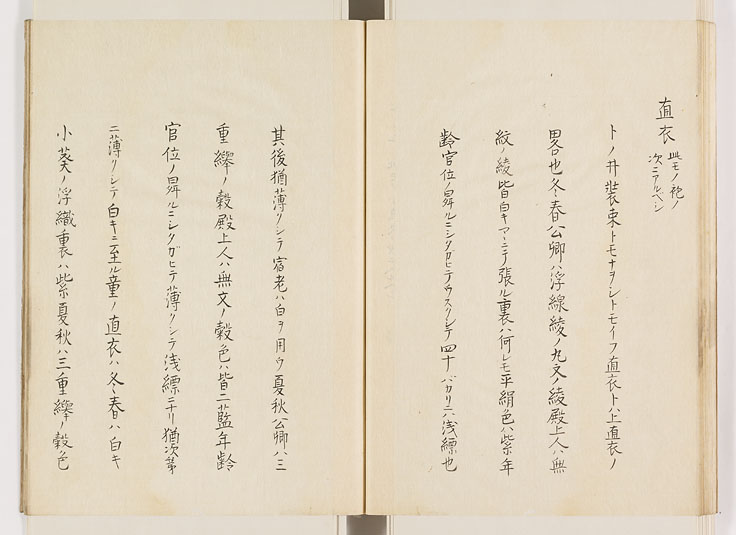 直衣 此モノ袍ノ
次ニアルベシ
トノ井裝束トモナヲシトモイフ直衣トハ上直衣ノ
畧也冬春公卿ハ浮線綾ノ丸文ノ綾殿上人ハ無
紋ノ綾皆白キマヽニテ張ル裏ハ何レモ平絹色ハ紫年
齡官位ノ昇ルニシタガヒテウスクシテ四十バカリニハ浅縹也
其後猶薄クシテ宿老ハ白ヲ用ウ夏秋公卿ハ三
重襷ノ縠殿上人ハ無文ノ縠色ハ皆二藍年齡
官位ノ昇ルニシタガヒテ薄クシテ浅縹ニナリ猶次第
ニ薄クシテ白キニ至ル童ノ直衣ハ冬春ハ白キ
小葵ノ浮織裏ハ紫夏秋ハ三重襷ノ縠色